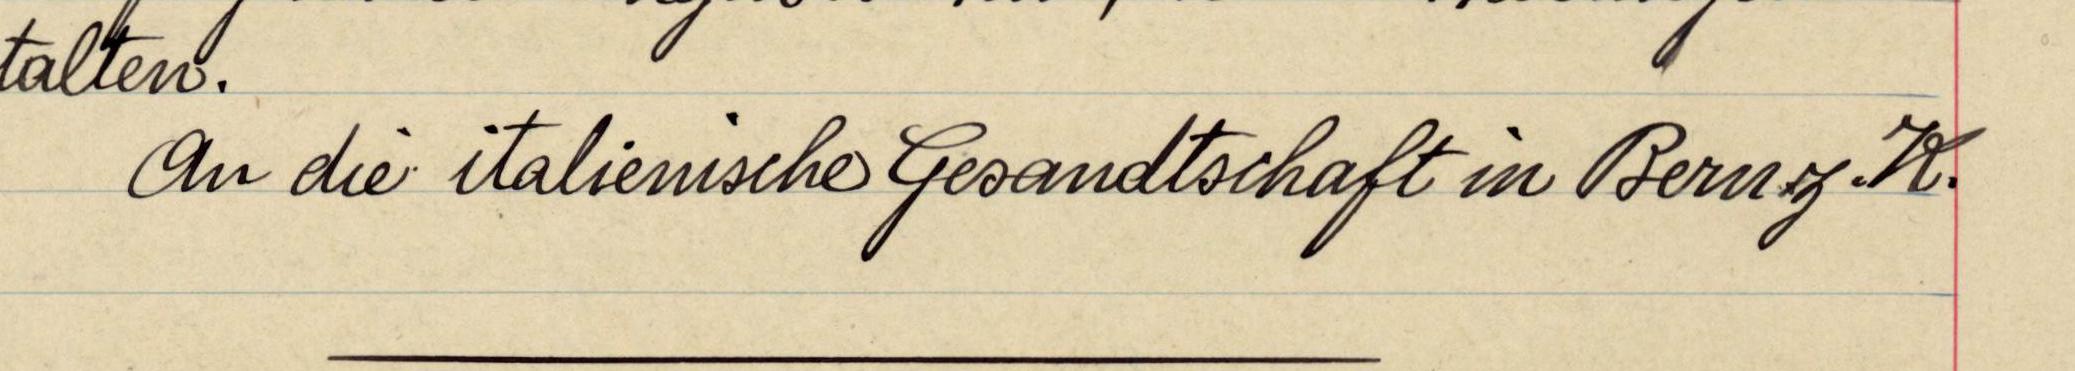 talten.
An die italienische Gesandtschaft in Bern z. K.